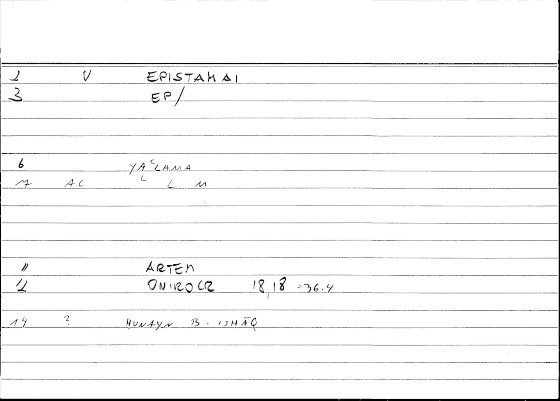 1 V EPISTAMAI
3 EP/
6 YAʿLAMA
7 AC ʿ L M
11 ARTEM
12 ONIROCR 18,18 = 36.4
14 ? HUNAYN B. ISHĀQ